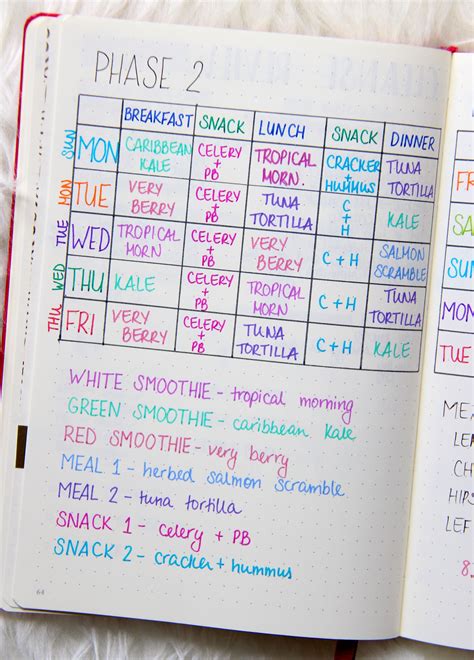 PHASE 2
BREAKFAST SNACK LUNCH SNACK DINNER
SUN MON CARIBBEAN KALE CELERY + PB TROPICAL MORN. CRACKER + HUMMUS TUNA TORTILLA
MON TUE VERY BERRY CELERY + PB TUNA TORTILLA C + H KALE
TUE WED TROPICAL MORN CELERY + PB VERY BERRY C + H SALMON SCRAMBLE
WED THU KALE CELERY + PB TROPICAL MORN C + H TUNA TORTILLA
THU FRI VERY BERRY CELERY + PB TUNA TORTILLA C + H KALE
WHITE SMOOTHIE - tropical morning
GREEN SMOOTHIE - caribbean kale
RED SMOOTHIE - very berry
MEAL 1 - herbed salmon scramble
MEAL 2 - tuna tortilla
SNACK 1 - celery + PB
SNACK 2 - cracker + hummus
64